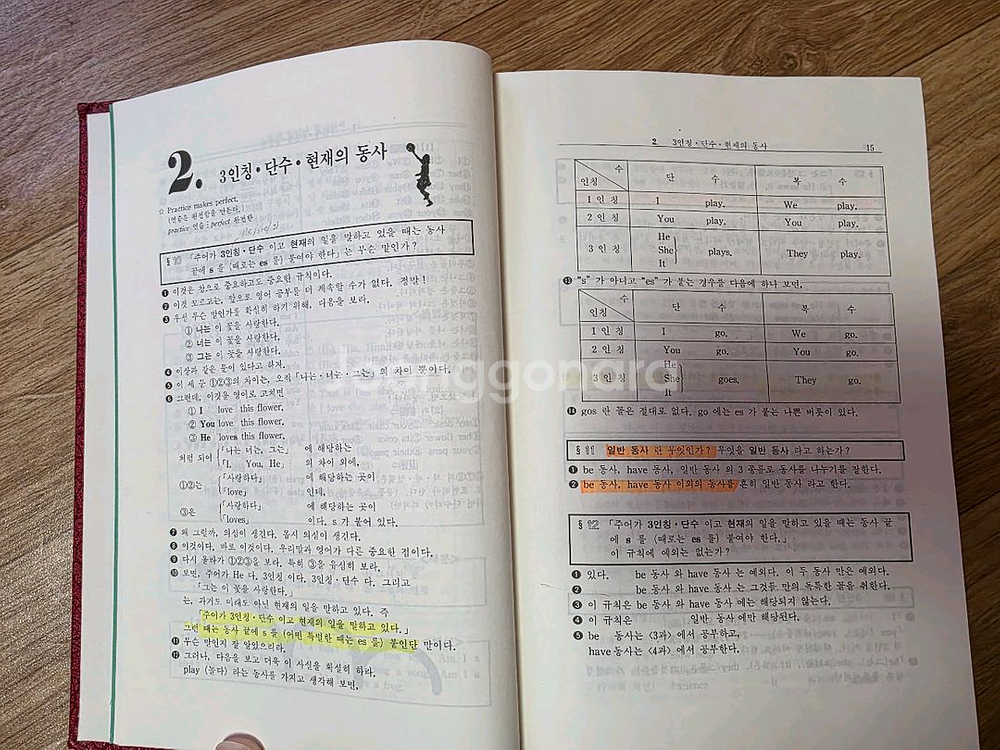 2. 3인칭·단수·현재의 동사
☆ Practice makes perfect.
(연습은 완전함을 만든다.)
practice 연습 ; perfect 완전한
§ 10 「주어가 3인칭·단수 이고 현재의 일을 말하고 있을 때는 동사
끝에 s 를 (때로는 es 를) 붙여야 한다」는 무슨 말인가?
❶ 이것은 참으로 중요하고도 중요한 규칙이다.
❷ 이것 모르고는, 앞으로 영어 공부를 더 계속할 수가 없다. 정말!
❸ 우선 무슨 말인가를 확실히 하기 위해, 다음을 보라.
① 나는 이 꽃을 사랑한다.
② 너는 이 꽃을 사랑한다.
③ 그는 이 꽃을 사랑한다.
❹ 이상과 같은 문이 있다고 하자.
❺ 이 세 문 ①②③의 차이는, 오직 「나는·너는·그는」의 차이 뿐이다.
❻ 그런데, 이것을 영어로 고치면
① I love this flower.
② You love this flower.
③ He loves this flower.
처럼 되어 「나는 너는, 그는」 에 해당하는
「I, You, He」 의 차이 외에,
①②는 「사랑하다」 에 해당하는 곳이
「love」 인데,
③은 「사랑하다」 에 해당하는 곳이
「loves」 이다. s 가 붙어 있다.
❼ 왜 그럴까, 의심이 생긴다. 몹시 의심이 생긴다.
❽ 이것이다, 바로 이것이다. 우리말과 영어가 다른 중요한 점이다.
❾ 다시 올라가 ①②③을 보라. 특히 ③을 유심히 보라.
❿ 보면, 주어가 He 다. 3인칭 이다. 3인칭·단수 다. 그리고
「그는 이 꽃을 사랑한다.」
는, 과거도 미래도 아닌 현재의 일을 말하고 있다. 즉
「주어가 3인칭·단수 이고 현재의 일을 말하고 있다.」
그런 때는 동사 끝에 s 를 (어떤 특별한 때는 es 를) 붙인단 말이다.
⓫ 무슨 말인지 잘 알았으리라.
⓬ 그러나, 다음을 보고 더욱 이 사실을 확실히 하라.
play (놀다) 라는 동사를 가지고 생각해 보면,
2. 3인칭·단수·현재의 동사 15
인칭 수 단 수 복 수
1 인 칭 I play. We play.
2 인 칭 You play. You play.
3 인 칭 He She It plays. They play.
⓭ "s" 가 아니고 "es" 가 붙는 경우를 다음에 하나 보면,
인칭 수 단 수 복 수
1 인 칭 I go. We go.
2 인 칭 You go. You go.
3 인 칭 He She It goes. They go.
⓮ gos 란 꼴은 절대로 없다. go 에는 es 가 붙는 나쁜 버릇이 있다.
§ 11 일반 동사 란 무엇인가? 무엇을 일반 동사 라고 하는가?
❶ be 동사, have 동사, 일반 동사 의 3 종류로 동사를 나누기를 잘한다.
❷ be 동사, have 동사 이외의 동사를 흔히 일반 동사 라고 한다.
§ 12 「주어가 3인칭·단수 이고 현재의 일을 말하고 있을 때는 동사 끝
에 s 를 (때로는 es 를) 붙여야 한다.」
이 규칙에 예외는 없는가?
❶ 있다. be 동사 와 have 동사 는 예외다. 이 두 동사 만은 예외다.
❷ be 동사 와 have 동사 는 그것들 만의 독특한 꼴을 취한다.
❸ 이 규칙은 be 동사 와 have 동사 에는 해당되지 않는다.
❹ 이 규칙은 일반 동사 에만 해당된다.
❺ be 동사는 <3과> 에서 공부하고,
have 동사는 <4과> 에서 공부한다.